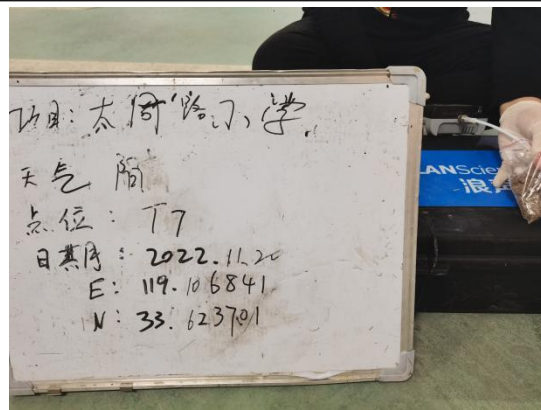 项目: 太周路小学.
天气 阴
点位: T7
日期: 2022.11.20
E: 119.106841
N: 33.623701
ANScie
浪声